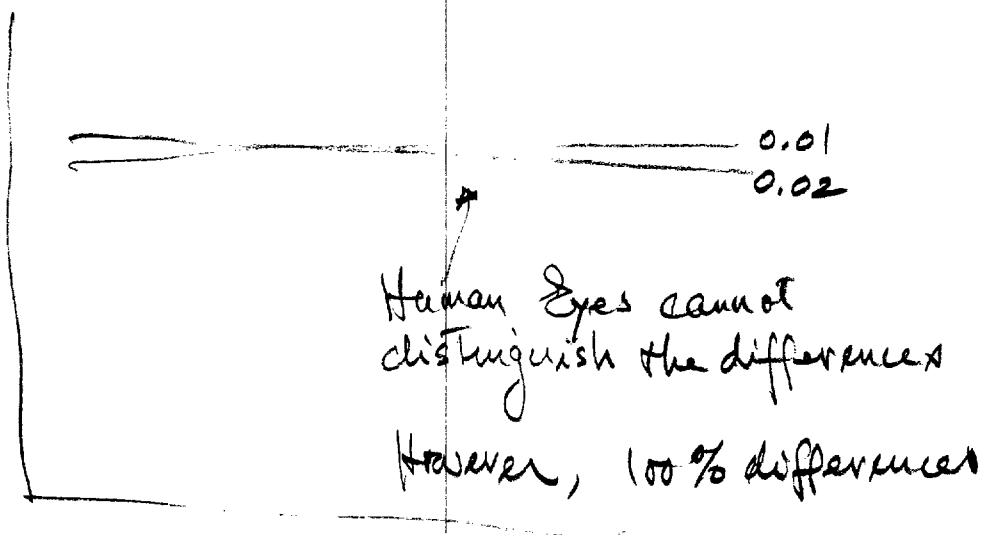 0.01
0.02
Human Eyes cannot
distinguish the differences
However, 100% differences